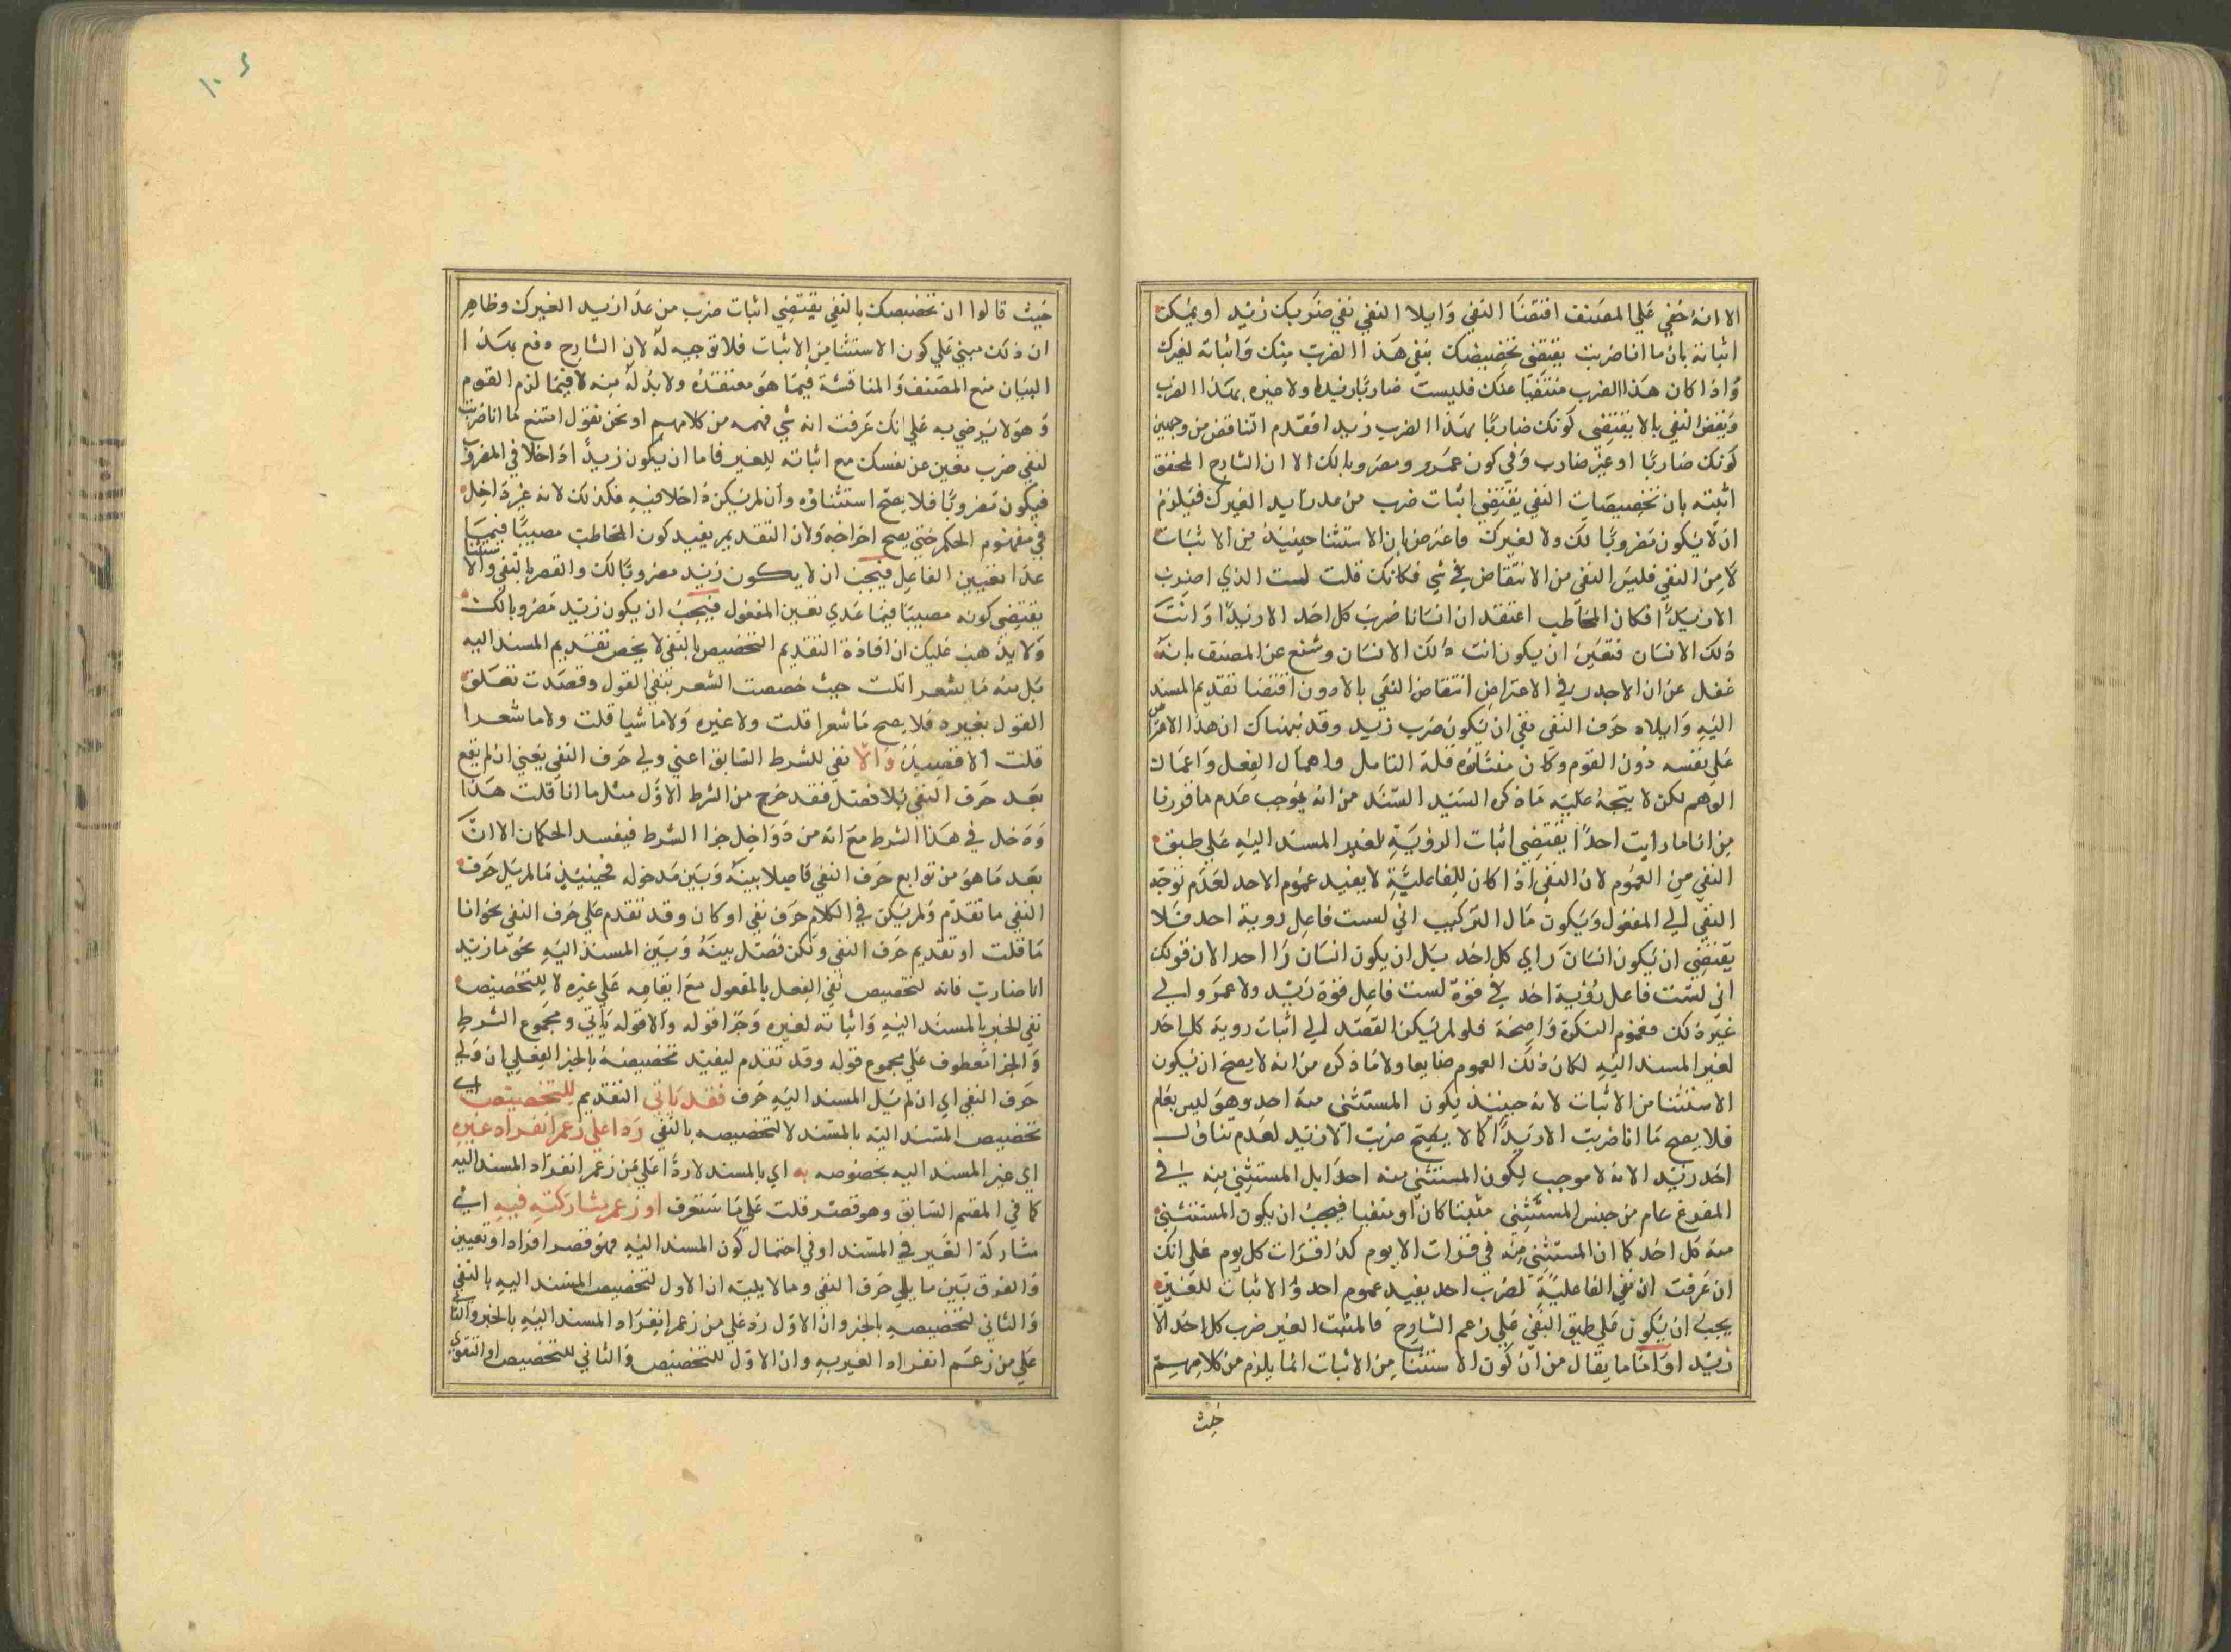 الا انه خفي علي المصنف اقتضا النفي وايلا النفي نفي ضربك زيد او يمكن
اثباته بان ما انا ضربت يقتضي تخصيصك بنفي هذا الضرب منك واثباته لغيرك
واذا كان هذا الضرب منتفيا عنك فليست ضاربا زيدا ولا غيره بهذا الضرب
ونقض النفي بالا يقتضي كونك ضاربا بهذا الضرب زيدا فقدم التناقض من وجهين
كونك ضاربا او غير ضارب وفي كون عمرو ومضروبا لك الا ان الشارح المحقق
اثبته بان تخصيصات النفي يقتضي اثبات ضرب من عدا زيد الغيرك فيلزم
ان لا يكون مضروبا لك ولا لغيرك واعترض بان الاستثنا حينيذ من الاثبات
لا من النفي فليس النفي من الانتقاض في شي فكانك قلت لست الذي اضرب
الا زيدا فكان المخاطب اعتقد ان انسانا ضرب كل احد الا زيدا وانت
ذلك الانسان فتعين ان يكون انت ذلك الانسان وشنع عن المصنف بانه
غفل عن ان الاجدر في الاعتراض انتقاض النفي بالا دون اقتضا تقديم المسند
اليه وايلاه حرف النفي نفي ان يكون ضرب زيد وقد نبهناك ان هذا الاعتراض
علي نفسه دون القوم وكان منشاؤه قلة التامل واهمال الفعل واعمال
الوهم لكن لا يتجه عليه ما ذكره السيد السند من انه يوجب عدم ما قررنا
من انا ما رايت احدا يقتضي اثبات الروية لغير المسند اليه علي طبق
النفي من العموم لان النفي اذا كان للفاعلية لا يفيد عموم الاحد لعدم توجه
النفي الي المفعول ويكون مال التركيب اني لست فاعل روية احد فلا
يقتضي ان يكون انسان راي كل احد بل ان يكون انسان را احد الان قولك
اني لست فاعل رؤية احد في قوة لست فاعل قوة زيد ولا عمرو الي
غير ذلك مفهوم النكرة واضحة فلو لم يكن القصد الي اثبات روية كل احد
لغير المسند اليه لكان ذلك العموم ضايعا ولا ما ذكره من انه لا يصح ان يكون
الاستثنا من الاثبات لانه حينيذ يكون المستثني منه احد وهو ليس بعام
فلا يصح ما انا ضربت الا زيدا كما لا يصح ضربت الا زيد لعدم تناول
احد زيد الا انه لا موجب لكون المستثني منه احدا بل المستثني منه في
المفرغ عام من جنس المستثني مثبتا كان او منفيا فيجب ان يكون المستثني
منه كل احد كما ان المستثني منه في قرات الا يوم كذا قرات كل يوم علي انك
ان عرفت ان نفي الفاعلية لضرب احد يفيد عموم احد والاثبات للغير
يجب ان يكون علي طبق النفي علي زعم الشارح فالمثبت الغير ضرب كل احد الا
زيد او اما ما يقال من ان كون الاستثنا من الاثبات انما يلزم من كلامهم
حيث
حيث قالوا ان تخصيصك بالنفي يقتضي اثبات ضرب من عدا زيد الغيرك وظاهر
ان ذلك مبني علي كون الاستثنا من الاثبات فلا توجيه له لان الشارح دفع بهذا
البيان منع المصنف والمناقشة فيما هو معتقده ولا بد له منه لا فيما لزم القوم
وهو لا يرضي به علي انك عرفت انه شي فهمه من كلامهم او نحن نقول امتنع ما انا ضربت
لنفي ضرب معين عن نفسك مع اثباته للغير فاما ان يكون زيدا داخلا في المضروب
فيكون مضروبا فلا يصح استثناؤه وان لم يكن داخلا فيه فكذلك لانه غير داخل
في مفهوم الحكم حتي يصح اخراجه ولان التقديم يفيد كون المخاطب مصيبا فيما
عدا تعيين الفاعل فيجب ان لا يكون زيد مضروبا لك والقصر بالنفي والاستثنا
يقتضي كونه مصيبا فيما عدي تعين المفعول فيجب ان يكون زيد مضروبا لك
ولا يذهب عليك ان افادة التقديم التخصيص بالنفي لا يخص تقديم المسند اليه
بل منه ما شعرا قلت حيث خصصت الشعر بنفي القول وقصدت تعلق
القول بغيره فلا يصح ما شعرا قلت ولا غيره ولا ما شيا قلت ولا ما شعرا
قلت الا قصيدة والا نفي للشرط السابق اعني ولي حرف النفي يعني ان لم يقع
بعد حرف النفي بلا فصل فقد خرج من الشرط الاول مثل ما انا قلت هذا
ودخل في هذا الشرط مع انه من دواخل جزا الشرط فيفسد الحكمان الا ان
بعد ما هو من توابع حرف النفي فاصلا بينه وبين مدخوله فحينيذ ما لم يل حرف
النفي ما تقدم ولم يكن في الكلام حرف نفي او كان وقد تقدم علي حرف النفي نحو انا
ما قلت او تقديم حرف النفي ولكن فصل بينه وبين المسند اليه نحو ما زيد
انا ضارب فانه لتخصيص نفي الفعل بالمفعول مع ايقاعه علي غيره لا للتخصيص
نفي الخبر بالمسند اليه واثباته لغيره وجزا قوله والا قوله ياتي ومجموع الشرط
والجزا معطوف علي مجموع قوله وقد تقدم ليفيد تخصيصه بالخبر الفعلي ان ولي
حرف النفي اي ان لم يل المسند اليه حرف فقد ياتي التقديم للتخصيص اي
تخصيص المسند اليه بالمسند لا لتخصيصه بالنفي ردا علي زعم انفراد غيره
اي غير المسند اليه بخصوصه به اي بالمسند لا ردا علي من زعم انفراد المسند اليه
كما في القسم السابق وهو قصر قلت علي ما ستعرف او زعم مشاركته فيه اي
مشاركة الغير في المسند او في احتمال كون المسند اليه فهو قصر افراد او تعيين
والفرق بين ما يلي حرف النفي وما لا يليه ان الاول لتخصيص المسند اليه بالنفي
والثاني لتخصيصه بالخبر وان الاول رد علي من زعم انفراد المسند اليه بالخبر والثاني
علي من زعم انفراد الغير به وان الاول للتخصيص والثاني للتخصيص او التقوي